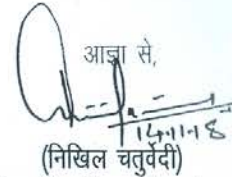 आज्ञा से,
14.11.8
(निखिल चतुर्वेदी)